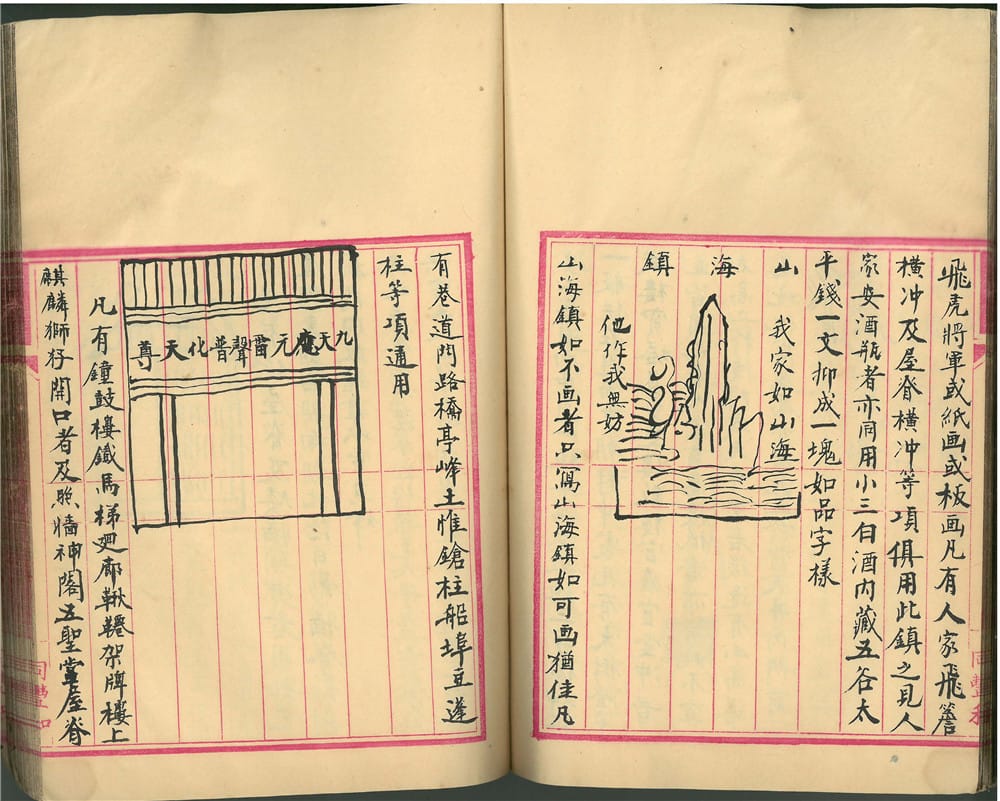 飛虎將軍或紙画或板画凡有人家飛簷
橫冲及屋脊橫冲等項俱用此鎮之見人
家安酒瓶者亦同用小三白酒内藏五谷太
平錢一文抑成一塊如品字樣
山海鎮
我家如山海
他作我無妨
山海鎮如不画者只寫山海鎮如可画猶佳凡
有巷道門路橋亭峰土惟鎗柱船埠豆蓬
柱等項通用
九天應元雷聲普化天尊
凡有鐘鼓樓鐵馬梯廻廊鞦韆架牌樓上
麒麟獅仔開口者及照墻神閣五聖堂屋脊
同豐